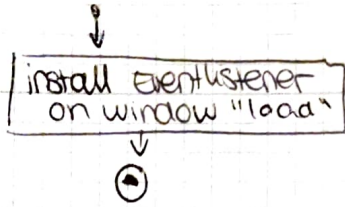 install Eventlistener
on window "load"